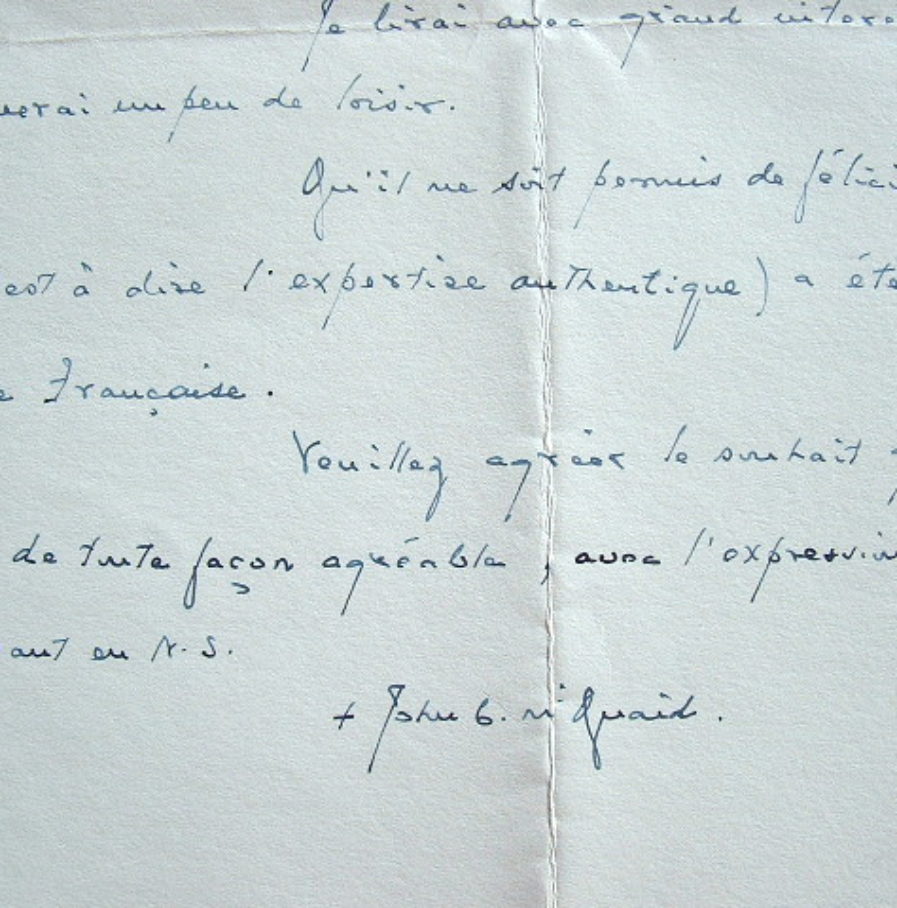 Je lirai avec grand intere
uerai un peu de loisir.
Qu'il me soit permis de félici
est à dire l'expertise authentique) a été
e Française.
Veuillez agréer le souhait
de toute façon agréable, avec l'expression
ant en N.S.
+ John C. McQuaid.